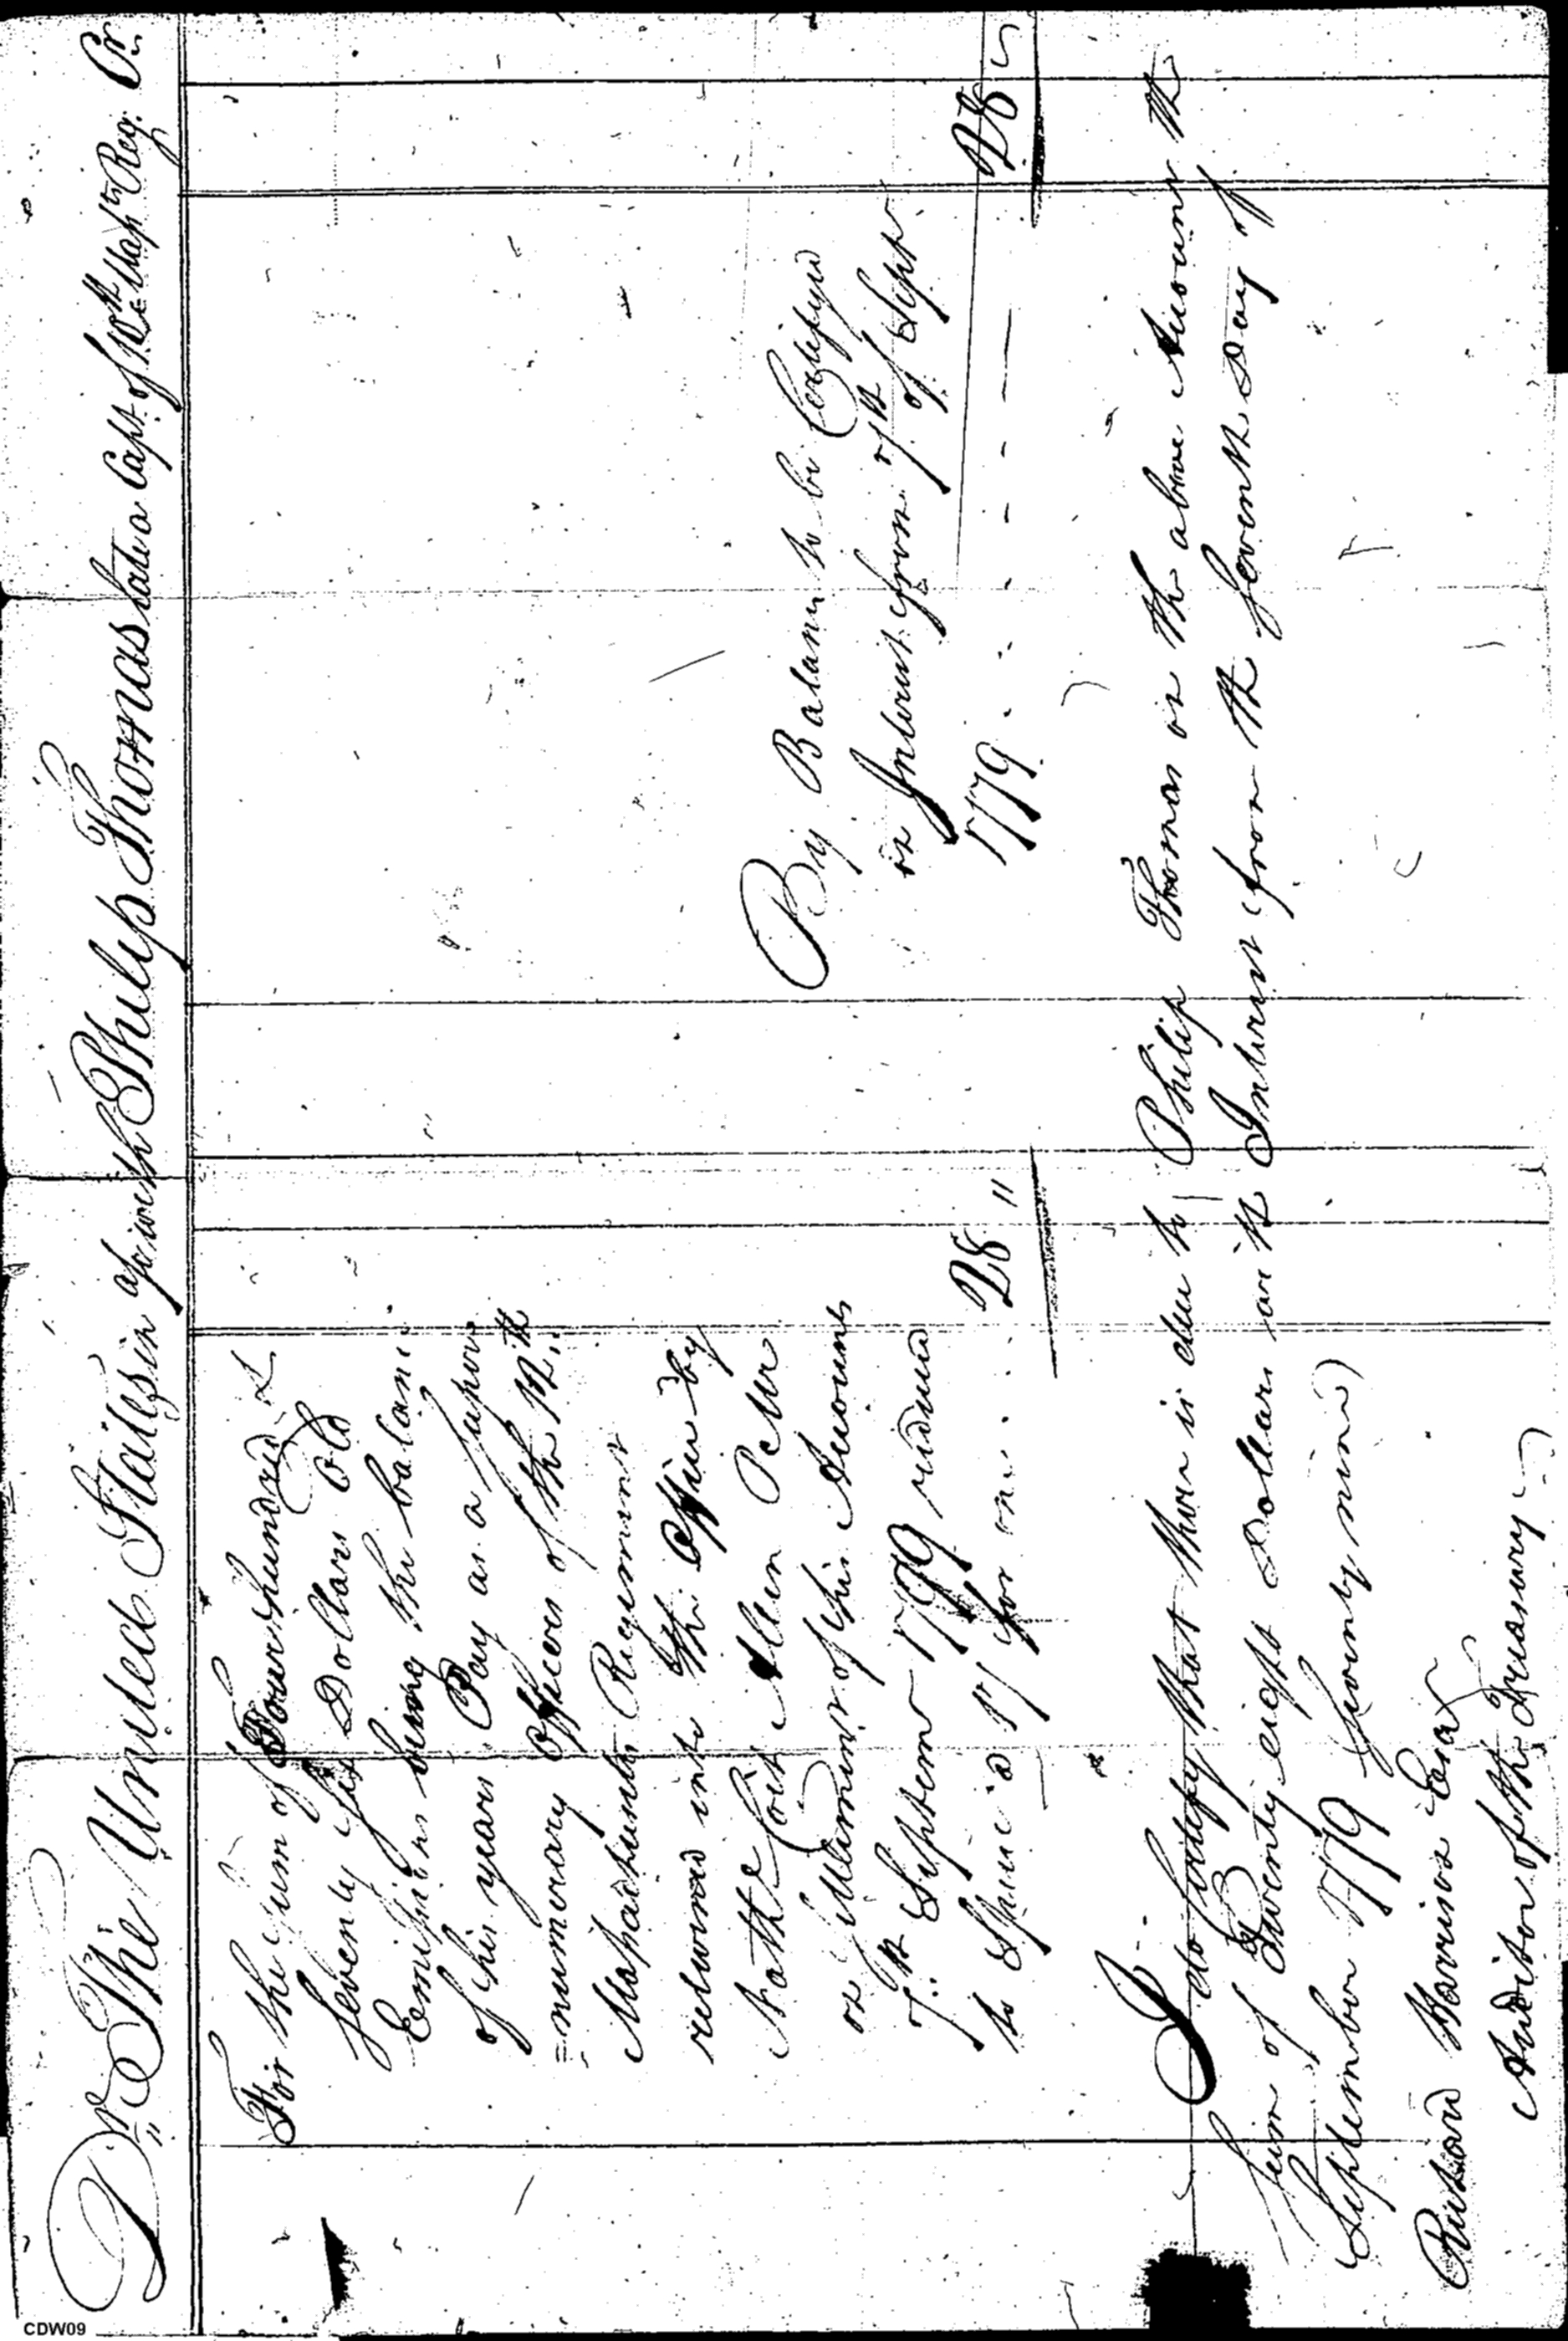 Dr The United States in a/c with Philip Thomas late a Capt. of 10th Masstts Reg. Cr
For the sum of Four hundred &
seventy six Dollars Old
Emissions being the balance
of his years Pay as a super
=numerary Officer of the 12th
Massachusetts Regiment
returned into this Office by
Nathl Coit Allen P Mr
on Settlement of his Accounts
7th Septemr 1779 reduced
to Specie @ 17 for one .... 28 "
By Balance to be Certifyed
on Interest from 7th of Sepr
1779 . . . . . . — — 28
I do Certify that there is due to Philip Thomas on the above Account the
Sum of Twenty eight Dollars with Interest from the Seventh Day of
September 1779 (Seventy nine)
Richard Harrison Esqr
Auditor of the Treasury
CDW09